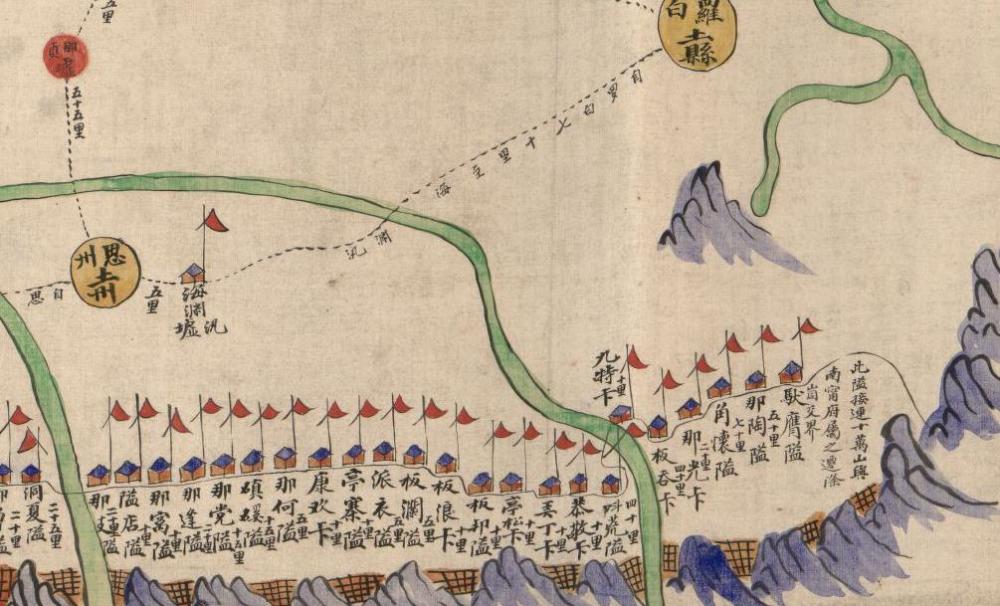 五里
羅白
土縣
五十五里
自罗白七十里至海淵汛
思州
土州
五里
自思
海淵墟
汛
此隘接連十萬山與
南甯府屬之遷隆
峝交界
馱膺隘
五十里
那陶隘
七十里
角懷隘
二十里
那光卡
四十里
板吞卡
十里
九特卡
四十里
十里
暮敢卡
十里
弄丁卡
十里
亭松卡
十里
板卯隘
十里
板浪卡
五里
板澜隘
五里
派衣隘
十里
亭寨隘
十里
康欢卡
五里
那何隘
十五里
十五里
那党隘
那逢隘
十里
那窩隘
隘店隘
二十五里
洞夏隘
二十里